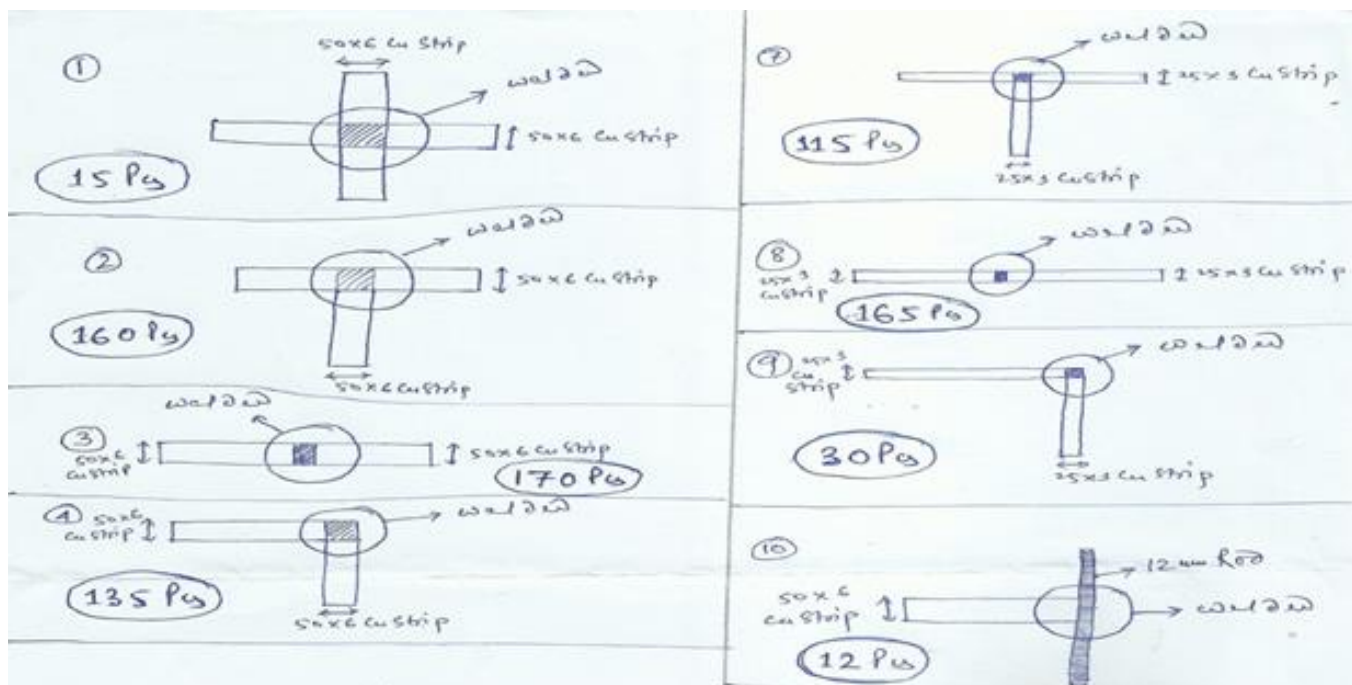 1
50x6 Cu Strip
welded
50x6 Cu Strip
15 Pcs
2
welded
50x6 Cu Strip
160 Pcs
50x6 Cu Strip
welded
3
50x6
Cu Strip
50x6 Cu Strip
170 Pcs
4
50x6
Cu Strip
welded
135 Pcs
50x6 Cu Strip
7
welded
25x3 Cu Strip
115 Pcs
25x3 Cu Strip
8
welded
25x3
Cu Strip
25x3 Cu Strip
165 Pcs
9
25x3
Cu
Strip
welded
30 Pcs
25x3 Cu Strip
10
12mm Rod
50x6
Cu Strip
welded
12 Pcs